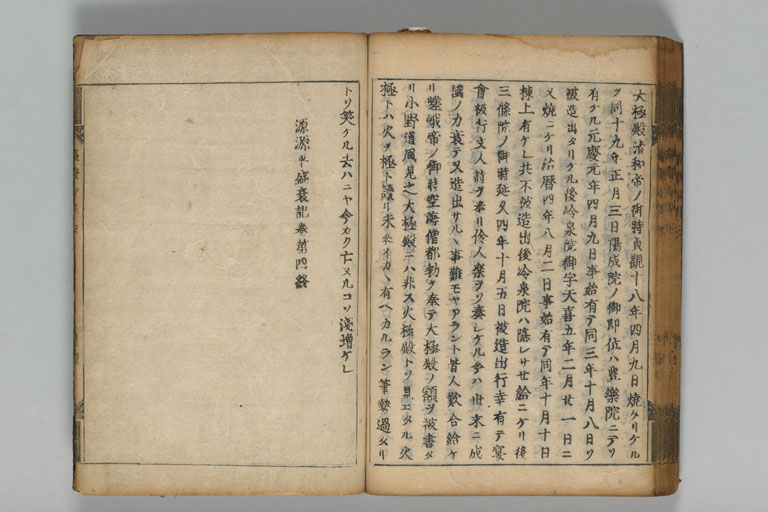 大極殿清和帝ノ御時貞觀十八年四月九日燒タリケル
ヲ同十九年正月三日陽成院ノ御即位ハ豊樂院ニテソ
有ケル元慶元年四月九日事始有テ同三年十月八日ソ
被造出タリケル後冷泉院御宇天喜五年二月廿一日ニ
又燒ニケリ治暦四年八月二日事始有テ同年十月十日
棟上有ケレ共不被造出後冷泉院ハ隠レサセ給ニケリ後
三條院ノ御時延久四年十月五日被造出行幸有テ宴
會被行文人詩ヲ奉リ伶人樂ヲソ奏シケル今ハ世末ニ成
國ノ力衰テ又造出サルヽ事難モヤアラント皆人歎合給ケ
リ嵯峨帝ノ御時空海僧都勅ヲ奉テ大極殿ノ額ヲ被書タ
リ小野道風見之大極殿ニハ非ス火極殿トソ見エタル火
極トハ火ヲ極ト讀リ未來イカヽ有ヘカルラン筆勢過タリ
トソ笑ケル去ハニヤ今カク亡ヌルコソ淺増ケレ
源源平盛衰記卷第四終